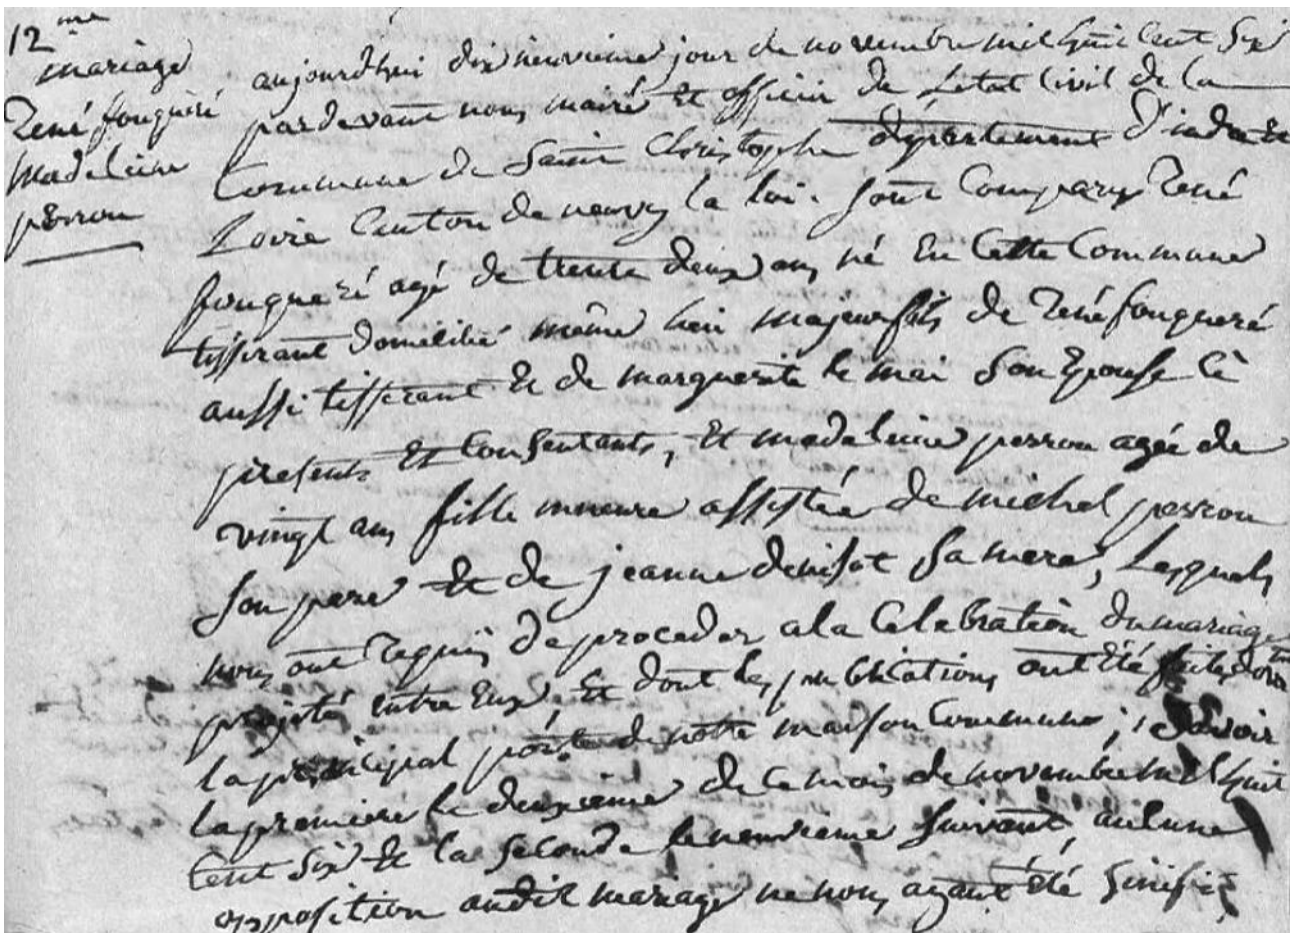 12me
mariage
René fouqueré
Madeleine
perron
aujourdhui dix neuvieme jour de novembre mil huit Cent Six
pardevant nous maire Et officier de Letat Civil de la
Commune de Saint Christophe département D'indre Et
Loire Canton de neuvy la loi. Sont Comparus René
fouqueré agé de trente deux ans né En Cette Commune
tisserant domicilié même lieu majeur fils de René fouqueré
aussi tisserant Et de marguerite le mai Son Epouse Cè
présents Et Consentants, Et madeleine perron agée de
vingt ans fille mineure assistée de michel perron
Son pere Et de jeanne denisot Sa mere, Lesquels
nous ont requis de proceder a la Celebration du mariage
projeté entre Eux, Et dont les publications ont Eté faites devant
la principal porte de notre maison Commune; Savoir
la premiere le deuxieme de Ce mois de novembre mil huit
Cent Six Et la Seconde le neuvieme Suivant, aucune
opposition audit mariage ne nous ayant Eté Sinifié